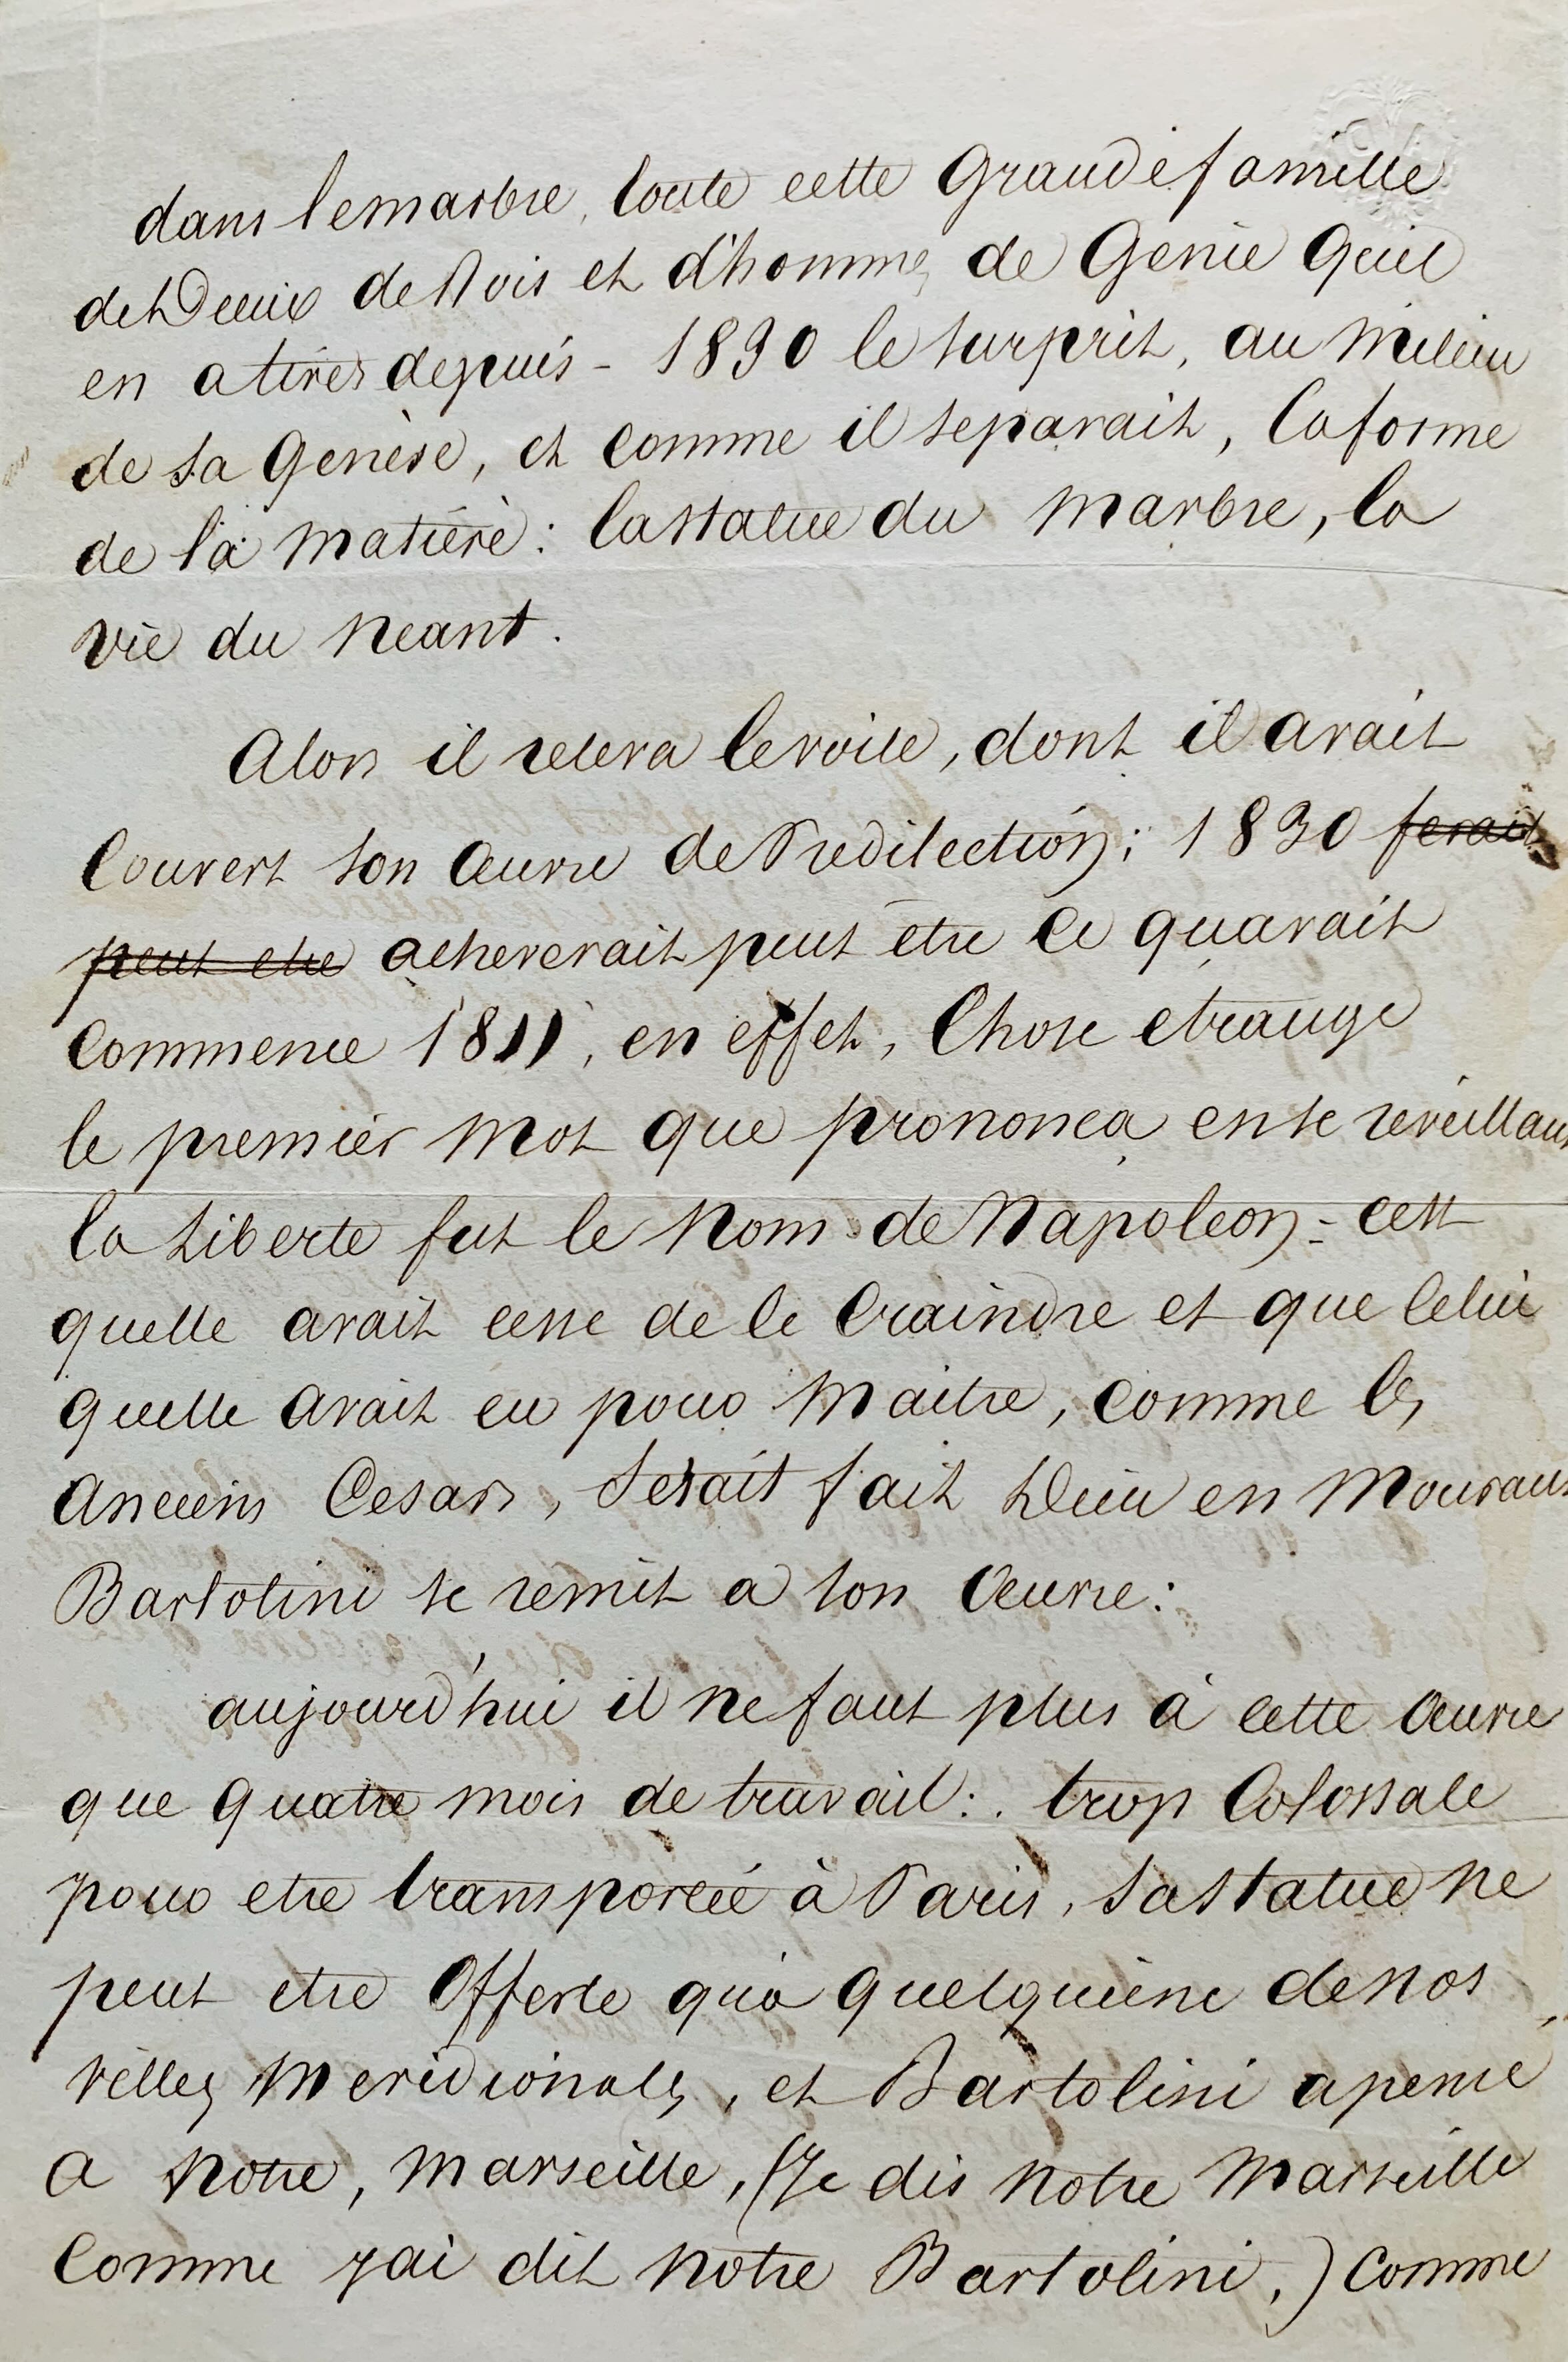 dans le marbre, toute cette Grande famille
de Dieux de Rois et d'hommes de Genie Quil
en a tirés depuis - 1830 le surprit, au Milieu
de sa Genèse, et comme il separait, la forme
de la matière : la statue du Marbre, la
vie du Neant.
Alors il releva le voile, dont il avait
Couvert son Œuvre de Predilection ; 1830 ferait
peut etre acheverait peut être ce quavait
Commence 1811, en effet, Chose etrange
le premier Mot que prononca en se réveillant
la Liberte fut le Nom de Napoleon - cest
quelle avait cesse de le Craindre et que Celui
quelle avait eu pour Maitre, comme les
anciens Cesars, Setait fait Dieu en Mourant
Bartolini se remit a son Œuvre :
aujourd'hui il ne faut plus à cette Œuvre
que Quatre mois de travail : . trop Colossale
pour etre transportéé à Paris, sa statue ne
peut etre Offerte quà quelquune de nos
villes Meridionales, et Bartolini a pense
a Notre, Marseille, (Je dis Notre Marseille
Comme jai dit Notre Bartolini,) Comme